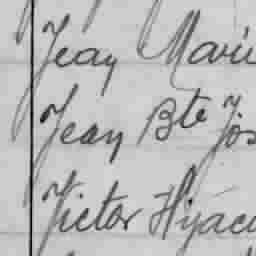 Jean Marie
Jean Bte Jos
Victor Hyac